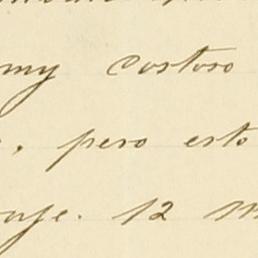 my costoso
, pero esto
aje. 12 m